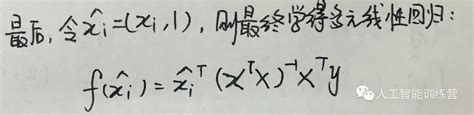 最后，令x̂ᵢ=(xᵢ,1)，则最终学得多元线性回归：
f(x̂ᵢ)=x̂ᵢᵀ(XᵀX)⁻¹Xᵀy
人工智能训练营